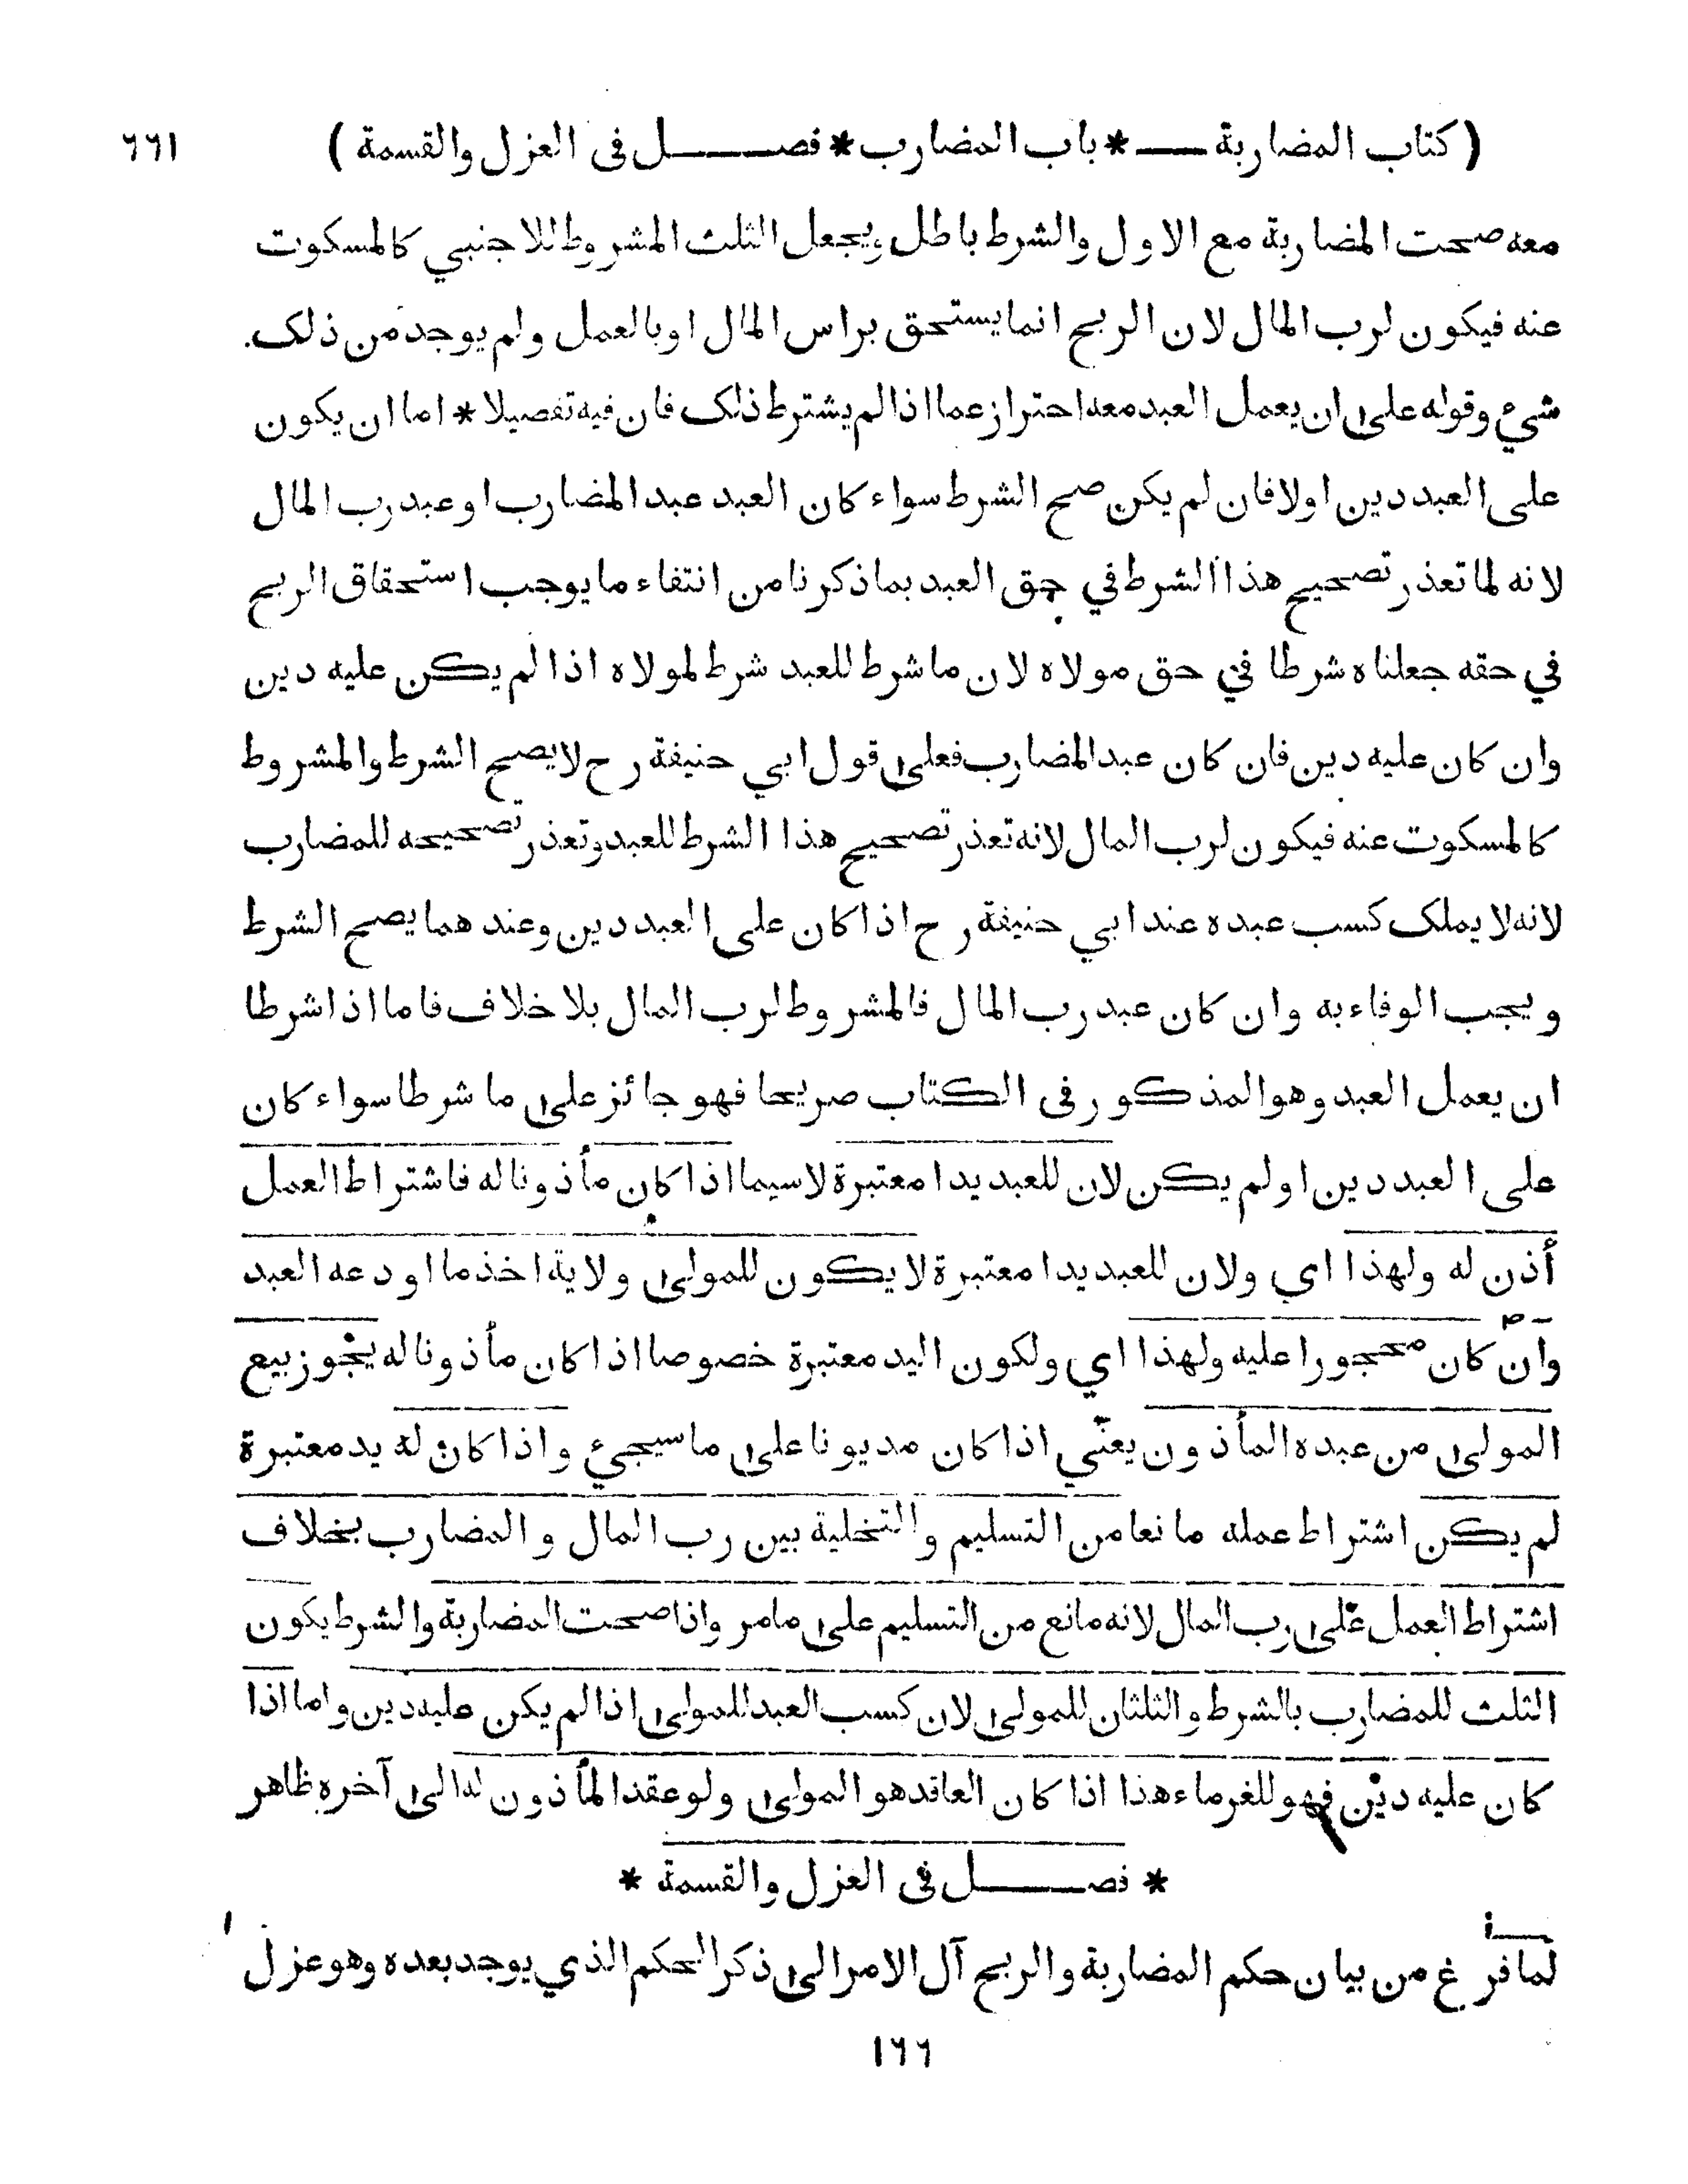 ( كتاب المضاربة — * باب المضارب * فصــــل فى العزل والقسمة ) ٦٦١
معه صحت المضاربة مع الاول والشرط باطل ويجعل الثلث المشروط للاجنبي كالمسكوت
عنه فيكون لرب المال لان الربح انما يستحق براس المال اوبالعمل ولم يوجد من ذلك
شيء وقوله على ان يعمل العبد معه احتراز عما اذا لم يشترط ذلك فان فيه تفصيلا * اما ان يكون
على العبد دين اولا فان لم يكن صح الشرط سواء كان العبد عبد المضارب او عبد رب المال
لانه لما تعذر تصحيح هذا الشرط في حق العبد بما ذكرنا من انتفاء ما يوجب استحقاق الربح
في حقه جعلناه شرطا في حق مولاه لان ما شرط للعبد شرط لمولاه اذا لم يكن عليه دين
وان كان عليه دين فان كان عبد المضارب فعلى قول ابي حنيفة رح لا يصح الشرط والمشروط
كالمسكوت عنه فيكون لرب المال لانه تعذر تصحيح هذا الشرط للعبد وتعذر تصحيحه للمضارب
لانه لا يملك كسب عبده عند ابي حنيفة رح اذا كان على العبد دين وعندهما يصح الشرط
ويجب الوفاء به وان كان عبد رب المال فالمشروط لرب المال بلا خلاف فاما اذا شرطا
ان يعمل العبد وهو المذكور فى الكتاب صريحا فهو جائز على ما شرطا سواء كان
على العبد دين او لم يكن لان للعبد يدا معتبرة لاسيما اذا كان مأذونا له فاشتراط العمل
أذن له ولهذا اي ولان للعبد يدا معتبرة لا يكون للمولى ولاية اخذ ما اودعه العبد
وان كان محجورا عليه ولهذا اي ولكون اليد معتبرة خصوصا اذا كان مأذونا له يجوز بيع
المولى من عبده المأذون يعني اذا كان مديونا على ما سيجيء واذا كان له يد معتبرة
لم يكن اشتراط عمله مانعا من التسليم والتخلية بين رب المال والمضارب بخلاف
اشتراط العمل على رب المال لانه مانع من التسليم على مامر واذا صحت المضاربة والشرط يكون
الثلث للمضارب بالشرط والثلثان للمولى لان كسب العبد للمولى اذا لم يكن عليه دين واما اذا
كان عليه دين فهو للغرماء هذا اذا كان العاقد هو المولى ولو عقد المأذون له الى آخره ظاهر
* فصــــل فى العزل والقسمة *
لما فرغ من بيان حكم المضاربة والربح آل الامر الى ذكر الحكم الذي يوجد بعده وهو عزل
١٦٦